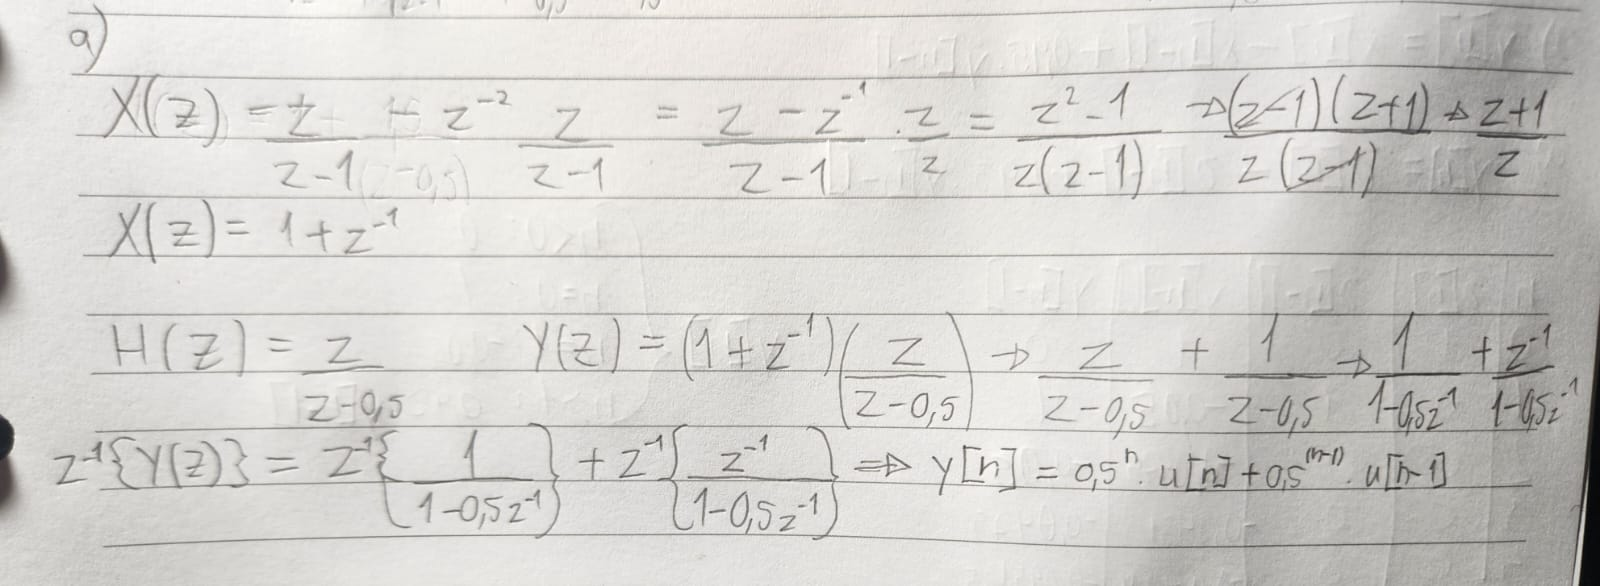 a)
X(z) = z/(z-1) - z⁻² z/(z-1) = (z - z⁻¹)/(z-1) · z/z = (z² - 1)/(z(z-1)) → (z-1)(z+1)/(z(z-1)) → (z+1)/z
X(z) = 1 + z⁻¹
H(z) = z/(z-0,5) Y(z) = (1 + z⁻¹)(z/(z-0,5)) → z/(z-0,5) + 1/(z-0,5) → 1/(1-0,5z⁻¹) + z⁻¹/(1-0,5z⁻¹)
z⁻¹{Y(z)} = z⁻¹{1/(1-0,5z⁻¹)} + z⁻¹{z⁻¹/(1-0,5z⁻¹)} ⇒ y[n] = 0,5ⁿ · u[n] + 0,5⁽ⁿ⁻¹⁾ · u[n-1]